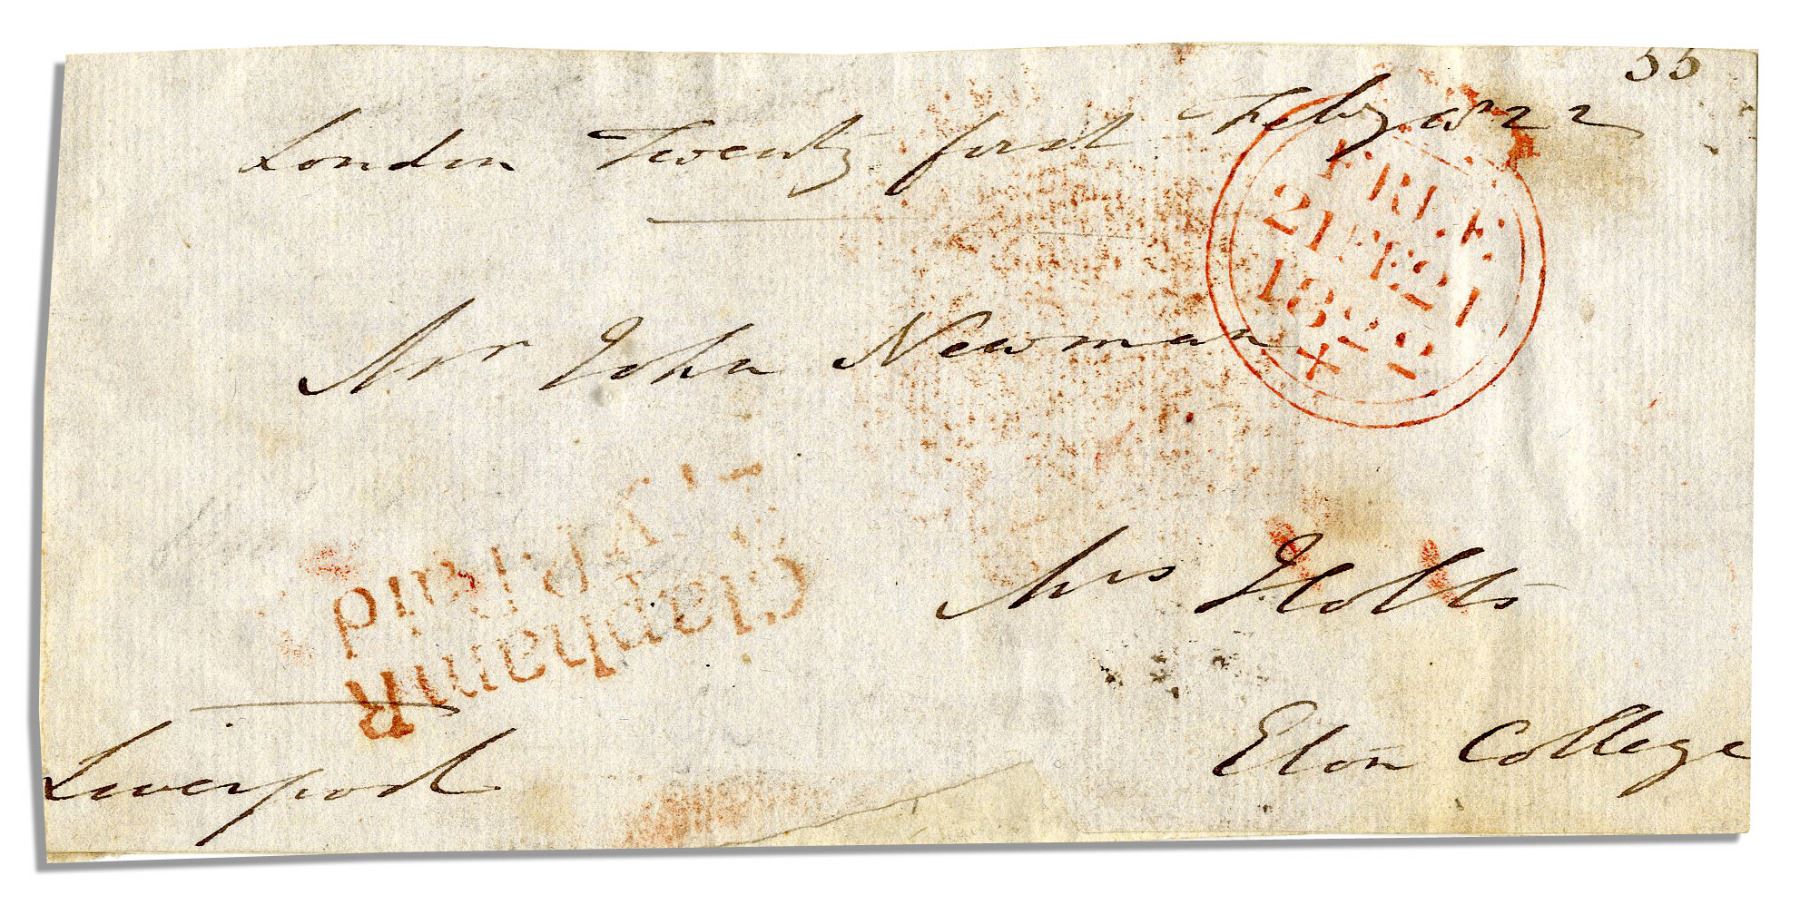 55
London Twenty first Feby 1822
FREE
21 FE 21
1822
Mr John Newman
Mrs Holts
Clapham R
Eton College
Liverpool